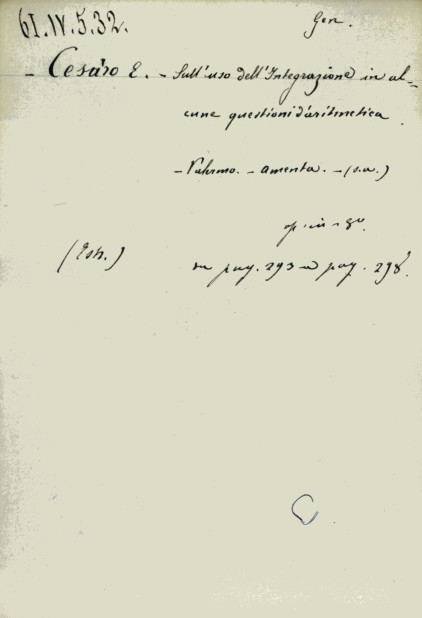 61.IV.5.32.
Gen.
- Cesàro E. - Sull'uso dell'Integrazione in al-
cune questioni d'aritmetica.
- Palermo. - Amenta. - (s.a.)
op. in - 8º.
(Estr.)
da pag. 293 a pag. 298.